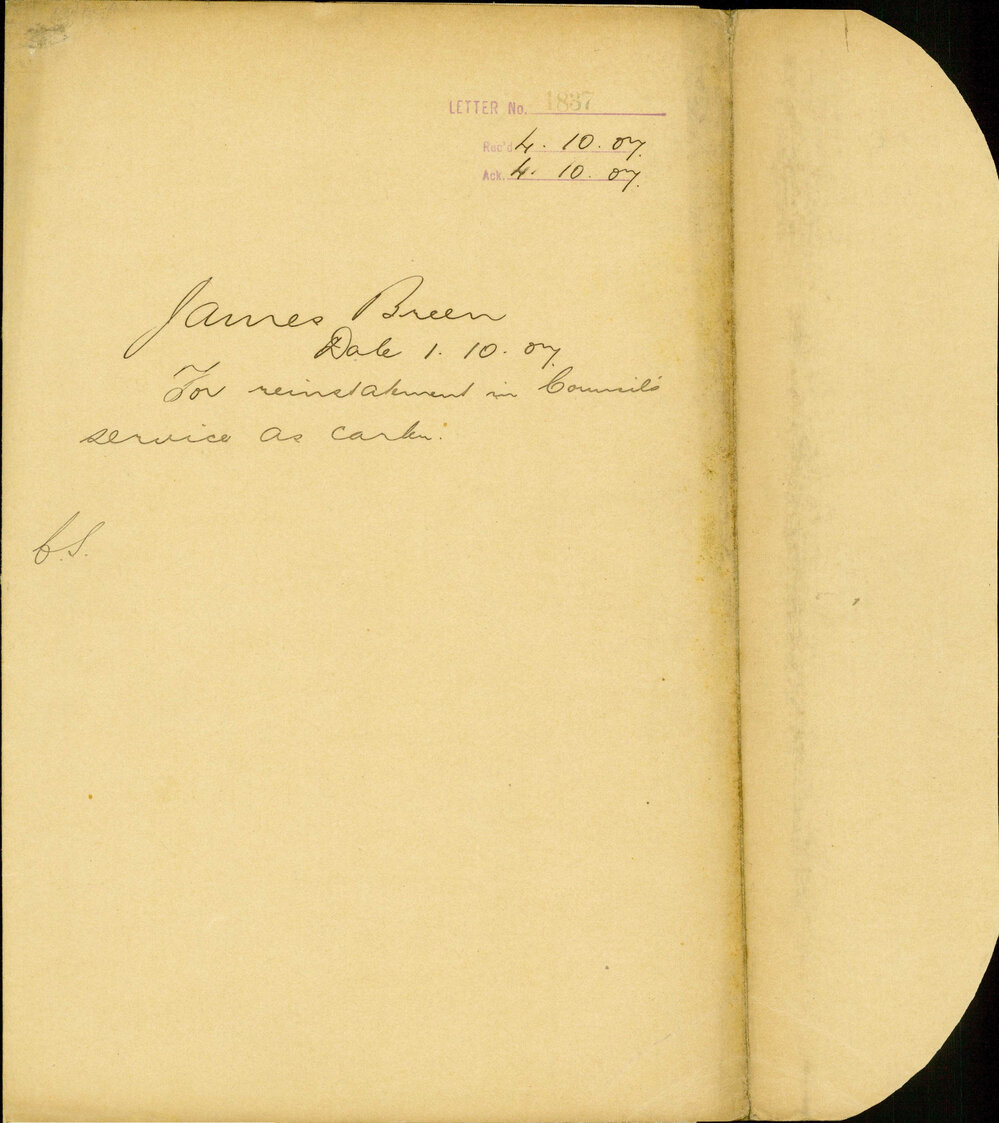 LETTER No. 1837
Rec'd 4. 10. 07.
Ack. 4. 10. 07.
James Breen
Date 1. 10. 07.
For reinstatement in Council's
service as carter.
C.S.